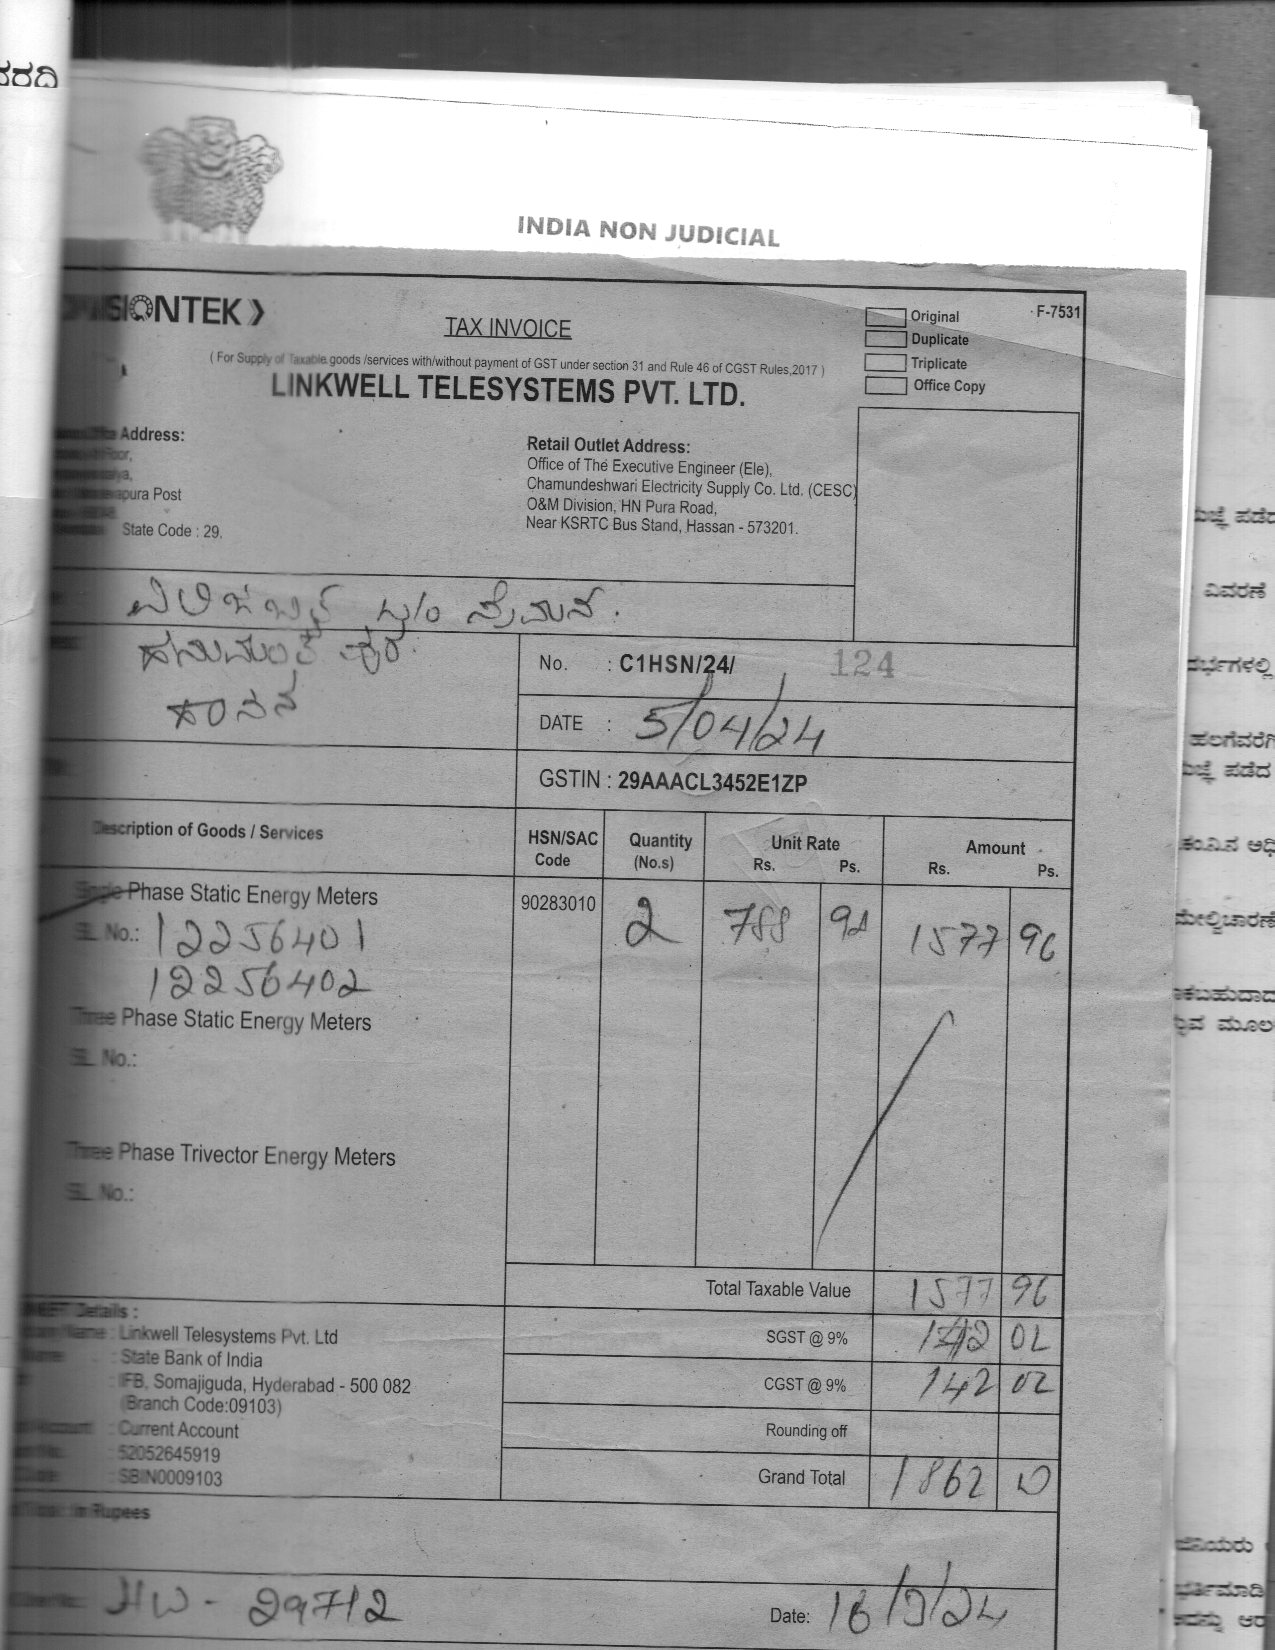 ರರದಿ
INDIA NON JUDICIAL
VISIONTEK
TAX INVOICE
F-7531
Original
Duplicate
Triplicate
Office Copy
( For Supply of Taxable goods /services with/without payment of GST under section 31 and Rule 46 of CGST Rules,2017 )
LINKWELL TELESYSTEMS PVT. LTD.
Address:
Floor,
pura Post
State Code : 29.
Retail Outlet Address:
Office of The Executive Engineer (Ele),
Chamundeshwari Electricity Supply Co. Ltd. (CESC)
O&M Division, HN Pura Road,
Near KSRTC Bus Stand, Hassan - 573201.
ಹಾಸನ
No. : C1HSN/24/ 124
DATE : 5/04/24
GSTIN : 29AAACL3452E1ZP
Description of Goods / Services HSN/SAC Code Quantity (No.s) Unit Rate Rs. Ps. Amount Rs. Ps.
Single Phase Static Energy Meters 90283010 2 788 98 1577 96
SL. No.: 12256401
12256402
Three Phase Static Energy Meters
SL. No.:
Three Phase Trivector Energy Meters
SL. No.:
Total Taxable Value 1577 96
SGST @ 9% 142 02
CGST @ 9% 142 02
Rounding off
Grand Total 1862 0
Details :
Name : Linkwell Telesystems Pvt. Ltd
: State Bank of India
: IFB, Somajiguda, Hyderabad - 500 082
(Branch Code:09103)
: Current Account
: 52052645919
: SBIN0009103
in Rupees
29712
Date: 16/9/24
ಪಡೆದ
ವಿವರಣೆ
ದರ್ಭಗಳಲ್ಲಿ
ಹಲಗೆವರೆಗಿ
ಪಡೆದ
ಕಂ.ವಿ.ನ ಅಧಿ
ಮೇಲ್ವಿಚಾರಣೆ
ಾಕಬಹುದಾದ
ಮೂಲ
ಜಿನಿಯರು
ಭರ್ತಿಮಾಡಿ